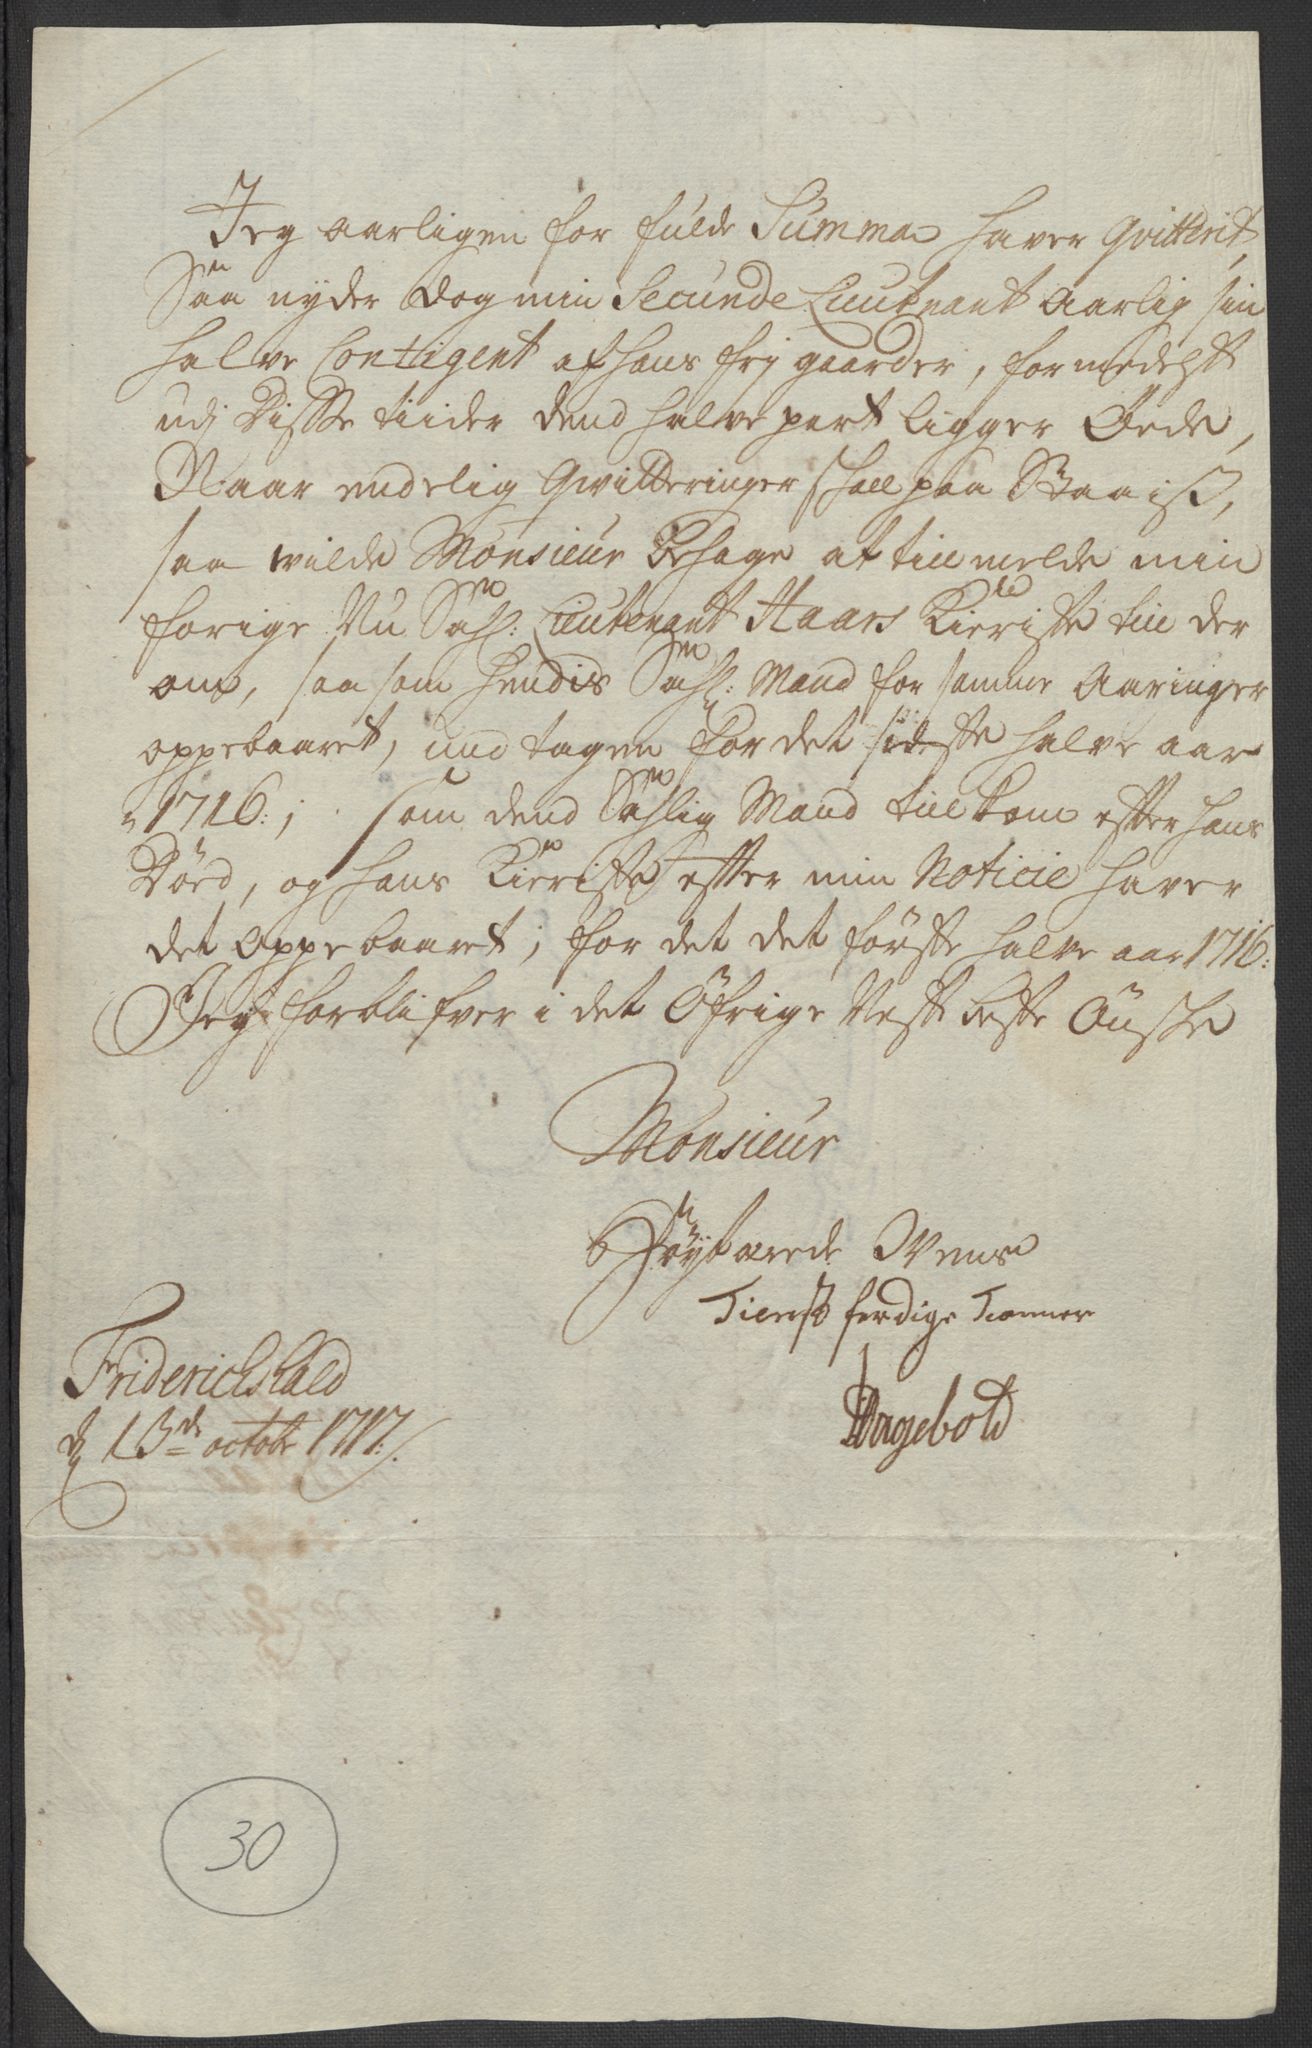 Jeg aarligen for fulde Summa haver qvitterit,
Saa nyder dog min Secunde Lieutnant aarlig sin
halve Contigent af hans frj gaarder, formedelst
udj disse tiider dend halve part ligger Øede,
Naar endelig Qvitteringer skall paa
saa wilde Monsieur Behage at till melde min
forige Nu Sahl: Lieutenant Haars Kieriste till der
om, saa som hendis Sahl: Mand for samme Aaringer
oppebaaret, und tagen for det sidste halve aar
1716:; som dend Sahlig Mand till kom efter hans
Död, og hans Kieriste efter min Noticie haver
det oppebaaret; for det det förste halve aar 1716:
Jeg forblifver i det Öfrige Nest beste Önske
Monsieur
Höytærede Wens
Tienst ferdige Tienner
Friderichshald
d 13de octobr 1717:/.
30